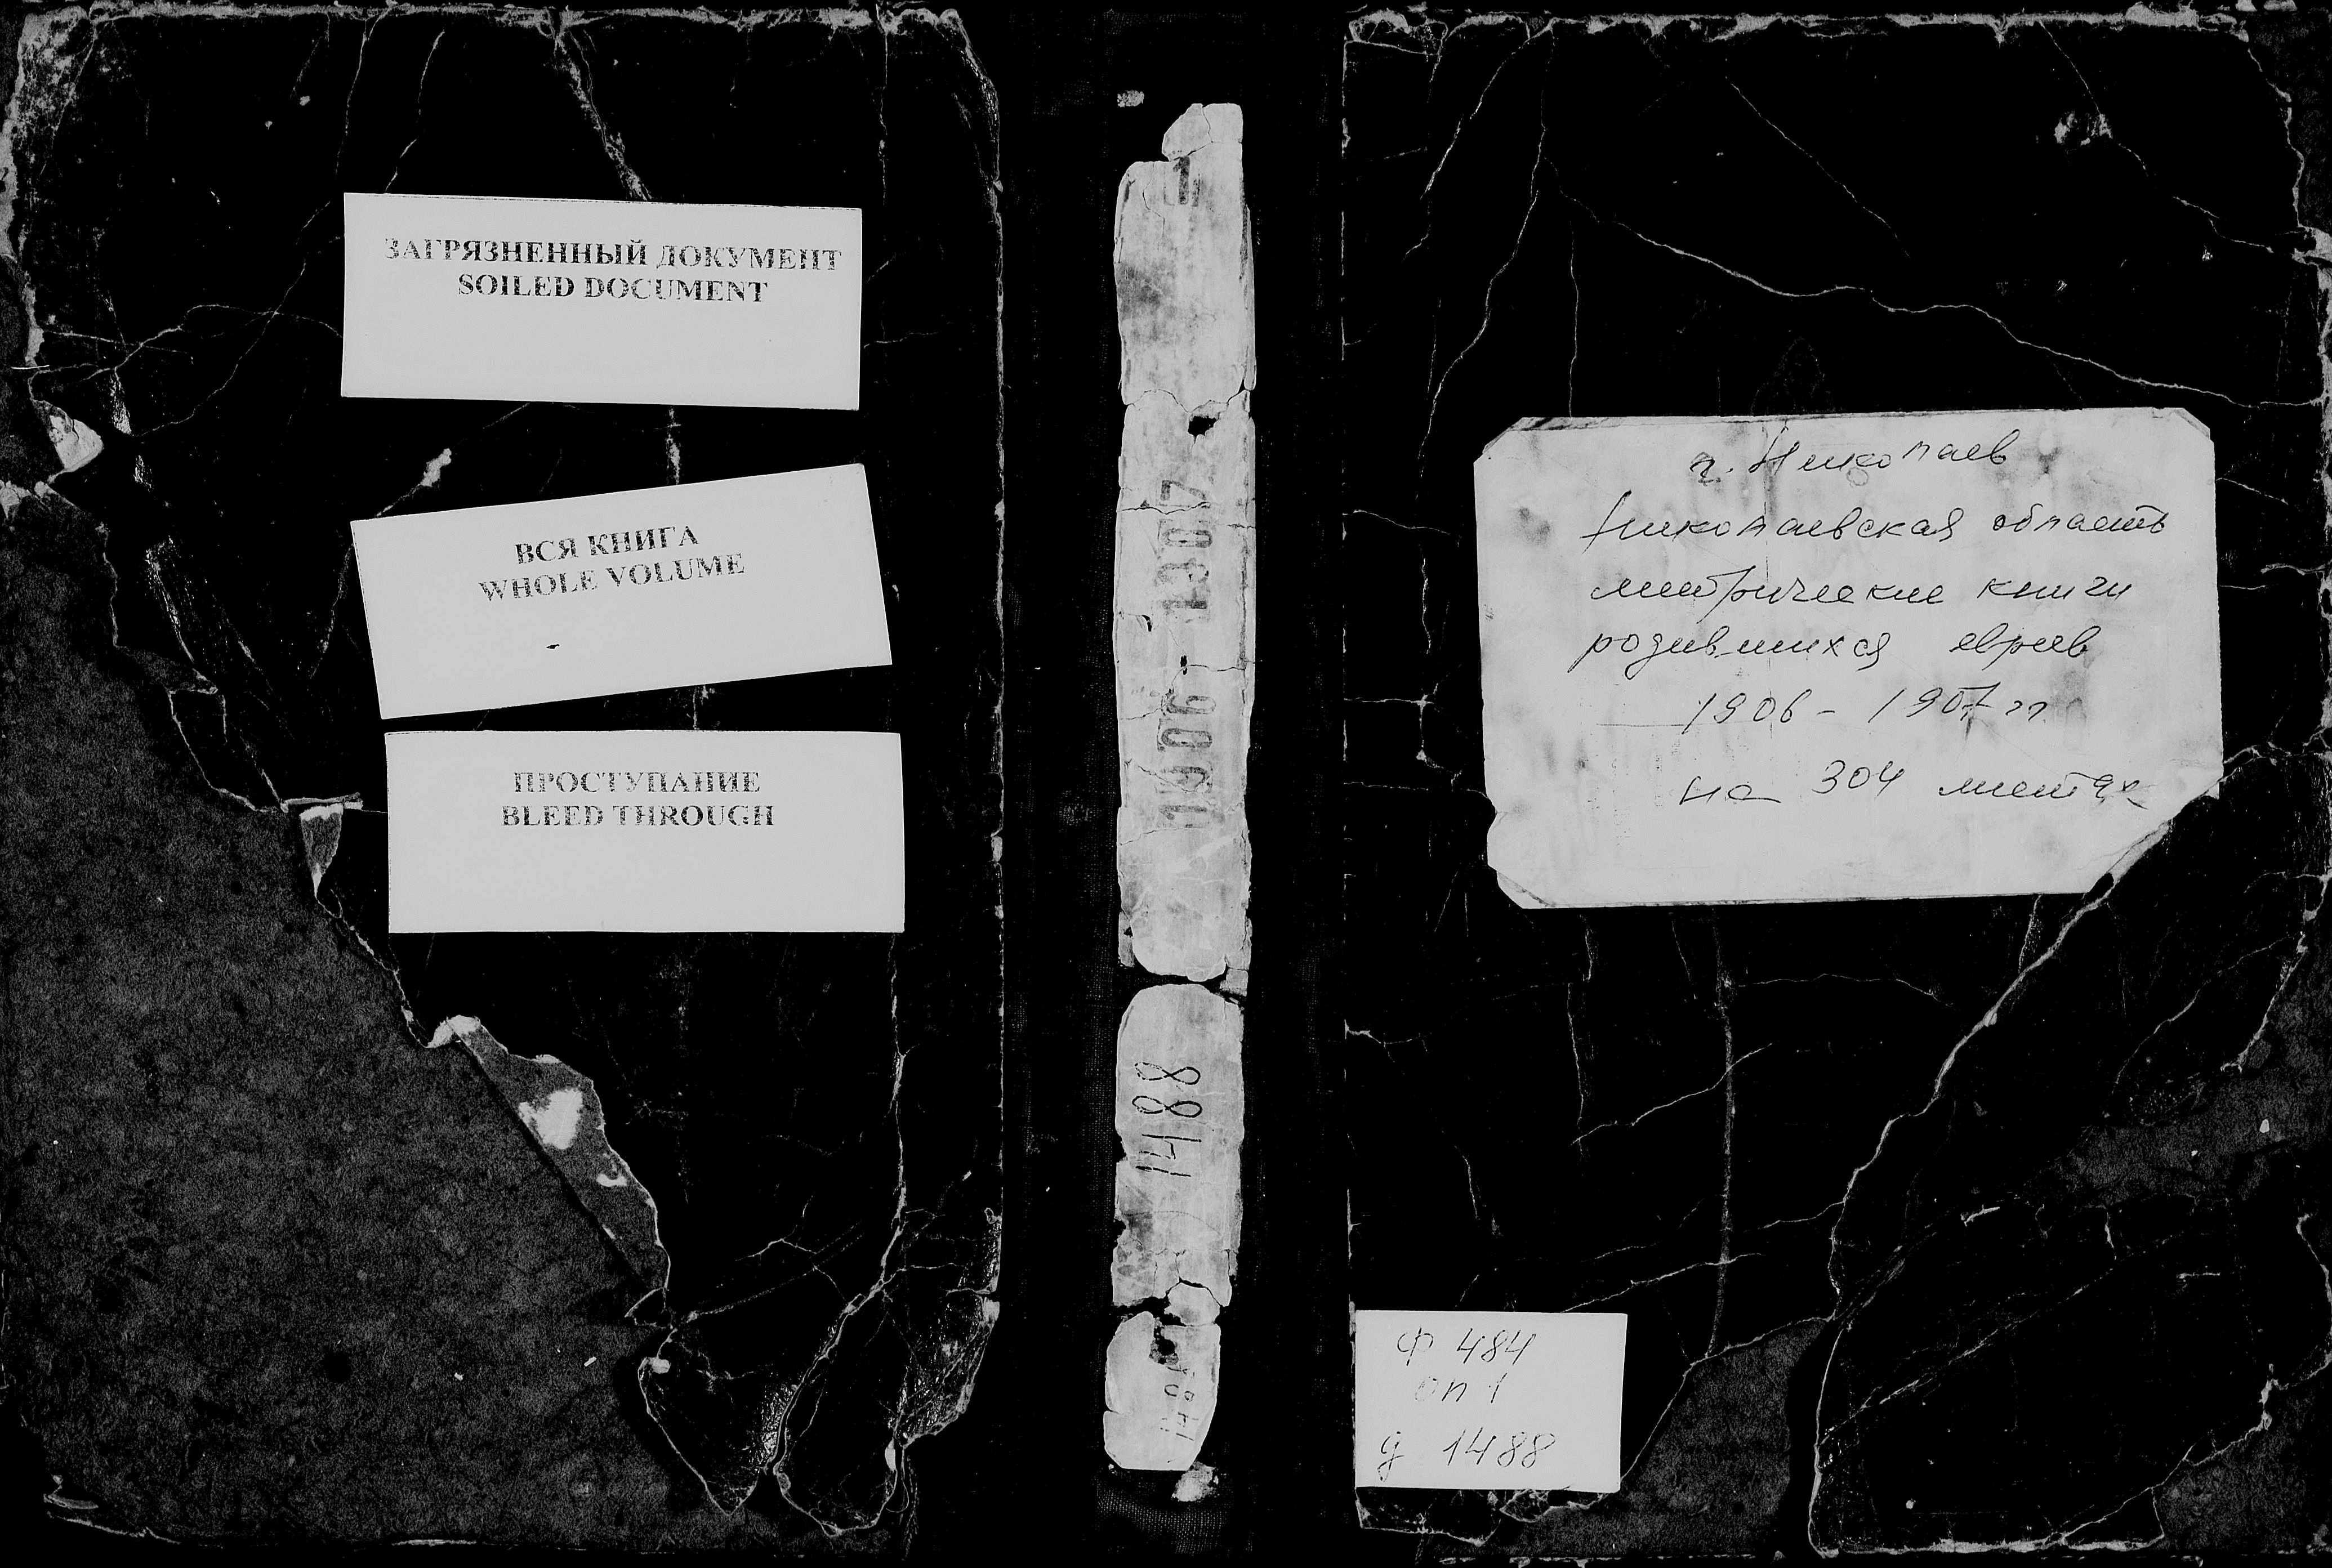 ЗАГРЯЗНЕННЫЙ ДОКУМЕНТ
SOILED DOCUMENT
ВСЯ КНИГА
WHOLE VOLUME
ПРОСТУПАНИЕ
BLEED THROUGH
1
1906-1907
1488
1488
г. Николаев
Николаевская область
метрические книги
родившихся евреев
1906 - 1907 гг
на 304 листах
Ф 484
оп 1
д 1488